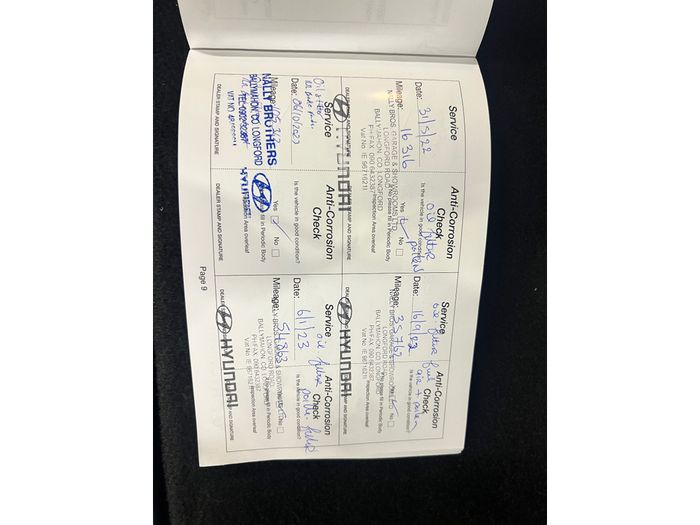 Service
Date: 31/5/22
Mileage: 16316
NALLY BROS. GARAGE & SHOWROOMS LTD.
LONGFORD ROAD
BALLYMAHON, CO. LONGFORD
PH/FAX: 090 6432387
Vat No. IE
HYUNDAI
DEALER STAMP AND SIGNATURE
Anti-Corrosion
Check
oil filter
pollen
Is the vehicle in good condition?
Yes No
please fill in Periodic Body
Inspection Area overleaf
DEALER STAMP AND SIGNATURE
Service
oil filter fuel
air + pollen
Date: 16/9/22
Mileage: 35762
NALLY BROS. GARAGE & SHOWROOMS LTD.
LONGFORD ROAD
BALLYMAHON, CO. LONGFORD
PH/FAX: 090 6432387
HYUNDAI
Anti-Corrosion
Check
Is the vehicle in good condition?
No
please fill in Periodic Body
Inspection Area overleaf
DEALER STAMP AND SIGNATURE
Service
Date: 05/10/2023
Mileage:
NALLY BROTHERS
BALLYMAHON CO LONGFORD
VAT NO
DEALER STAMP AND SIGNATURE
Anti-Corrosion
Check
Is the vehicle in good condition?
Yes No
fill in Periodic Body
Inspection Area overleaf
HYUNDAI
DEALER STAMP AND SIGNATURE
Service
oil filter
pollen filter
Date: 6/1/23
Mileage: 54863
NALLY BROS. GARAGE & SHOWROOMS LTD.
LONGFORD ROAD
BALLYMAHON, CO. LONGFORD
PH/FAX: 090 6432387
HYUNDAI
Anti-Corrosion
Check
Is the vehicle in good condition?
No
please fill in Periodic Body
Inspection Area overleaf
DEALER STAMP AND SIGNATURE
Page 9